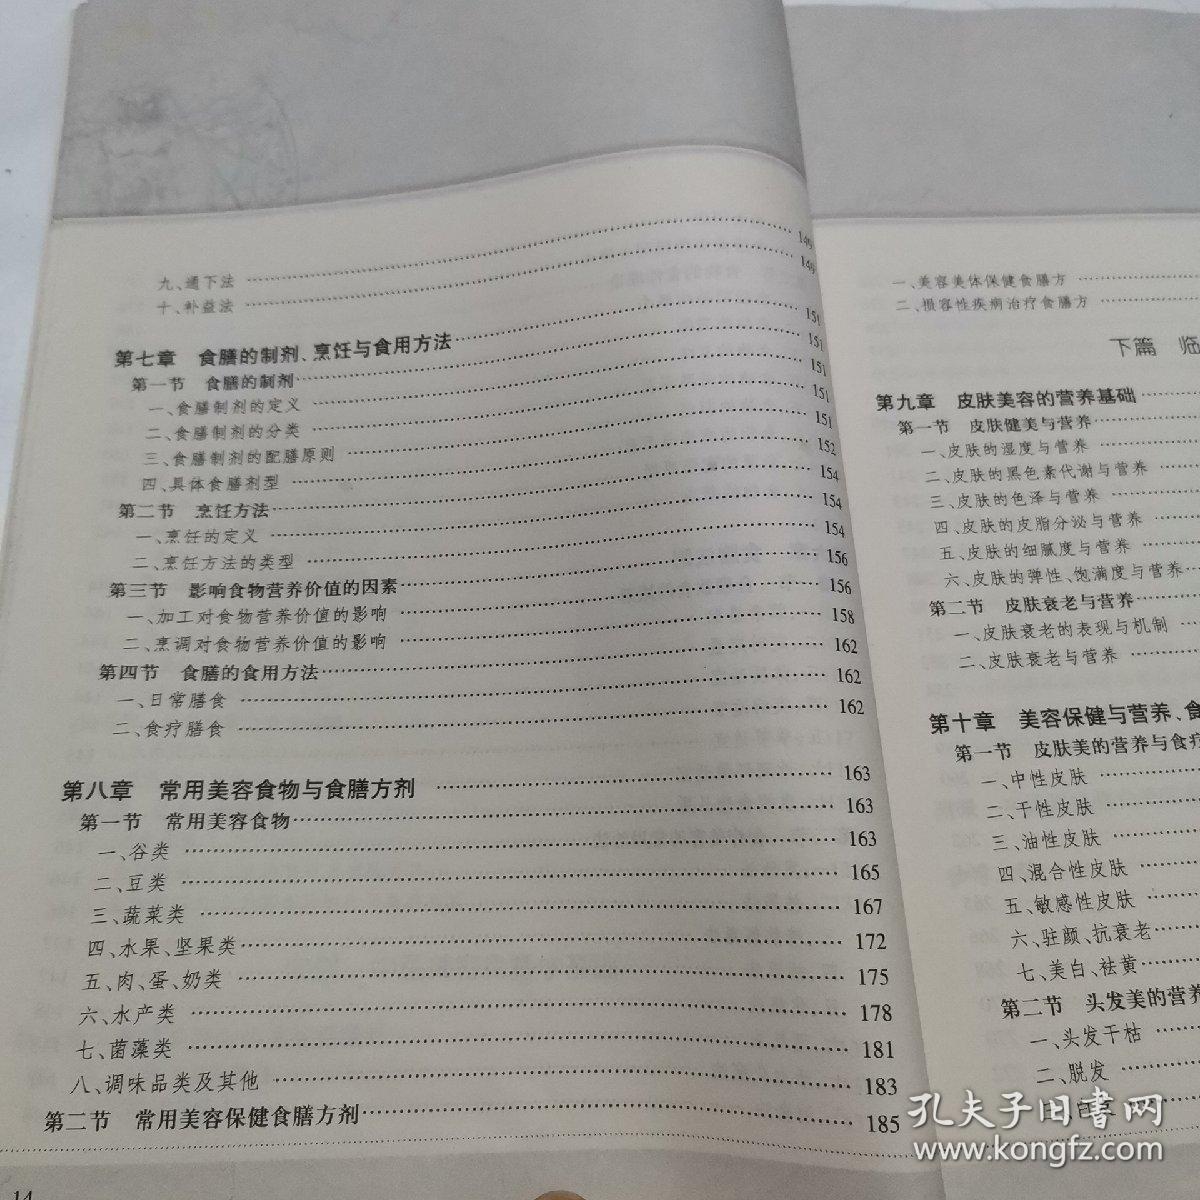 九、通下法 149
十、补益法 149
第七章 食膳的制剂、烹饪与食用方法 151
第一节 食膳的制剂 151
一、食膳制剂的定义 151
二、食膳制剂的分类 151
三、食膳制剂的配膳原则 151
四、具体食膳剂型 152
第二节 烹饪方法 154
一、烹饪的定义 154
二、烹饪方法的类型 154
第三节 影响食物营养价值的因素 156
一、加工对食物营养价值的影响 156
二、烹调对食物营养价值的影响 158
第四节 食膳的食用方法 162
一、日常膳食 162
二、食疗膳食 162
第八章 常用美容食物与食膳方剂 163
第一节 常用美容食物 163
一、谷类 163
二、豆类 165
三、蔬菜类 167
四、水果、坚果类 172
五、肉、蛋、奶类 175
六、水产类 178
七、菌藻类 181
八、调味品类及其他 183
第二节 常用美容保健食膳方剂 185
14
一、美容美体保健食膳方
二、损容性疾病治疗食膳方
下篇 临
第九章 皮肤美容的营养基础
第一节 皮肤健美与营养
一、皮肤的湿度与营养
二、皮肤的黑色素代谢与营养
三、皮肤的色泽与营养
四、皮肤的皮脂分泌与营养
五、皮肤的细腻度与营养
六、皮肤的弹性、饱满度与营养
第二节 皮肤衰老与营养
一、皮肤衰老的表现与机制
二、皮肤衰老与营养
第十章 美容保健与营养、食
第一节 皮肤美的营养与食疗
一、中性皮肤
二、干性皮肤
三、油性皮肤
四、混合性皮肤
五、敏感性皮肤
六、驻颜、抗衰老
七、美白、祛黄
第二节 头发美的营养
一、头发干枯
二、脱发
孔夫子旧书网
www.kongfz.com